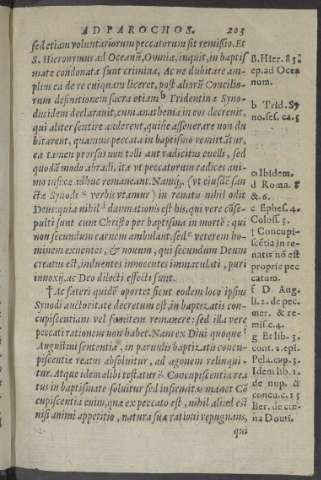 AD PAROCHOS. 203
sed etiam voluntariorum peccatorum sit remissio. Et
S. Hieronymus ad Oceanũ, Omnia, inquit, in baptis
mate condonata sunt crimina, Ac ne dubitare am-
plius ea de re cuiquam liceret, post aliorũ Concilio-
rum definitionem sacra etiam b Tridentina Syno-
dus idem declarauit, cum anathema in eos decreuit,
qui aliter sentire auderent, quiue asseuerare non du
bitarent, quamuis peccata in baptismo remittãtur,
ea tamen prorsus non tolli aut radicitus euelli, sed
quodã modo abradi, ita vt peccatorum radices ani-
mo infixæ adhuc remaneant. Namq́; (vt eiusdẽ san-
ctæ Synodi c verbis vtamur) in renatis nihil odit
Deus: quia nihil d damnationis est his, qui vere cõse-
pulti sunt cum Christo per baptisma in mortẽ: qui
non secundum carnem ambulant. sed e veterem ho-
minem exuentes, & nouum, qui secundum Deum
creatus est, induentes innocentes immaculati, puri
innoxij, ac Deo dilecti effecti sunt.
† Ac fateri quidẽ oportet sicut eodem loco ipsius
Synodi auctoritate decretum est, in baptezatis con-
cupiscentiam vel fomitem remanere: sed illa vere
peccati rationem non habet. Nam ex Diui quoque f
Augustini sententia, in paruulis baptizatis concu-
piscentiæ reatus absoluitur, ad agonem relinqui-
tur. Atque idem alibi testatur g. Concupiscentiæ rea
tus in baptismate soluitur sed infirmitas manet Cõ
cupiscentia enim, quæ ex peccato est, nihil aliud est
nisi animi appetitio, natura sua rationi repugnans,
qui
B. Hier. 83.
ep. ad Ocea
num.
b Trid. Sy
no. ses. ca. 5
c Ibidem.
d Roma. 8
& 6.
e Ephes. 4.
Coloss. 3.
† Concupi-
scẽtia in re-
natis nõ est
proprie pec
catum.
f D. Aug.
li. 2. de pec.
mer. & re-
mis. c. 4.
g Et lib. 3.
cont. 2. epi.
Pela. cap. 3.
Idem lib. 1.
de nup. &
concu. c. 15
Iter. de cœ-
na Domi.